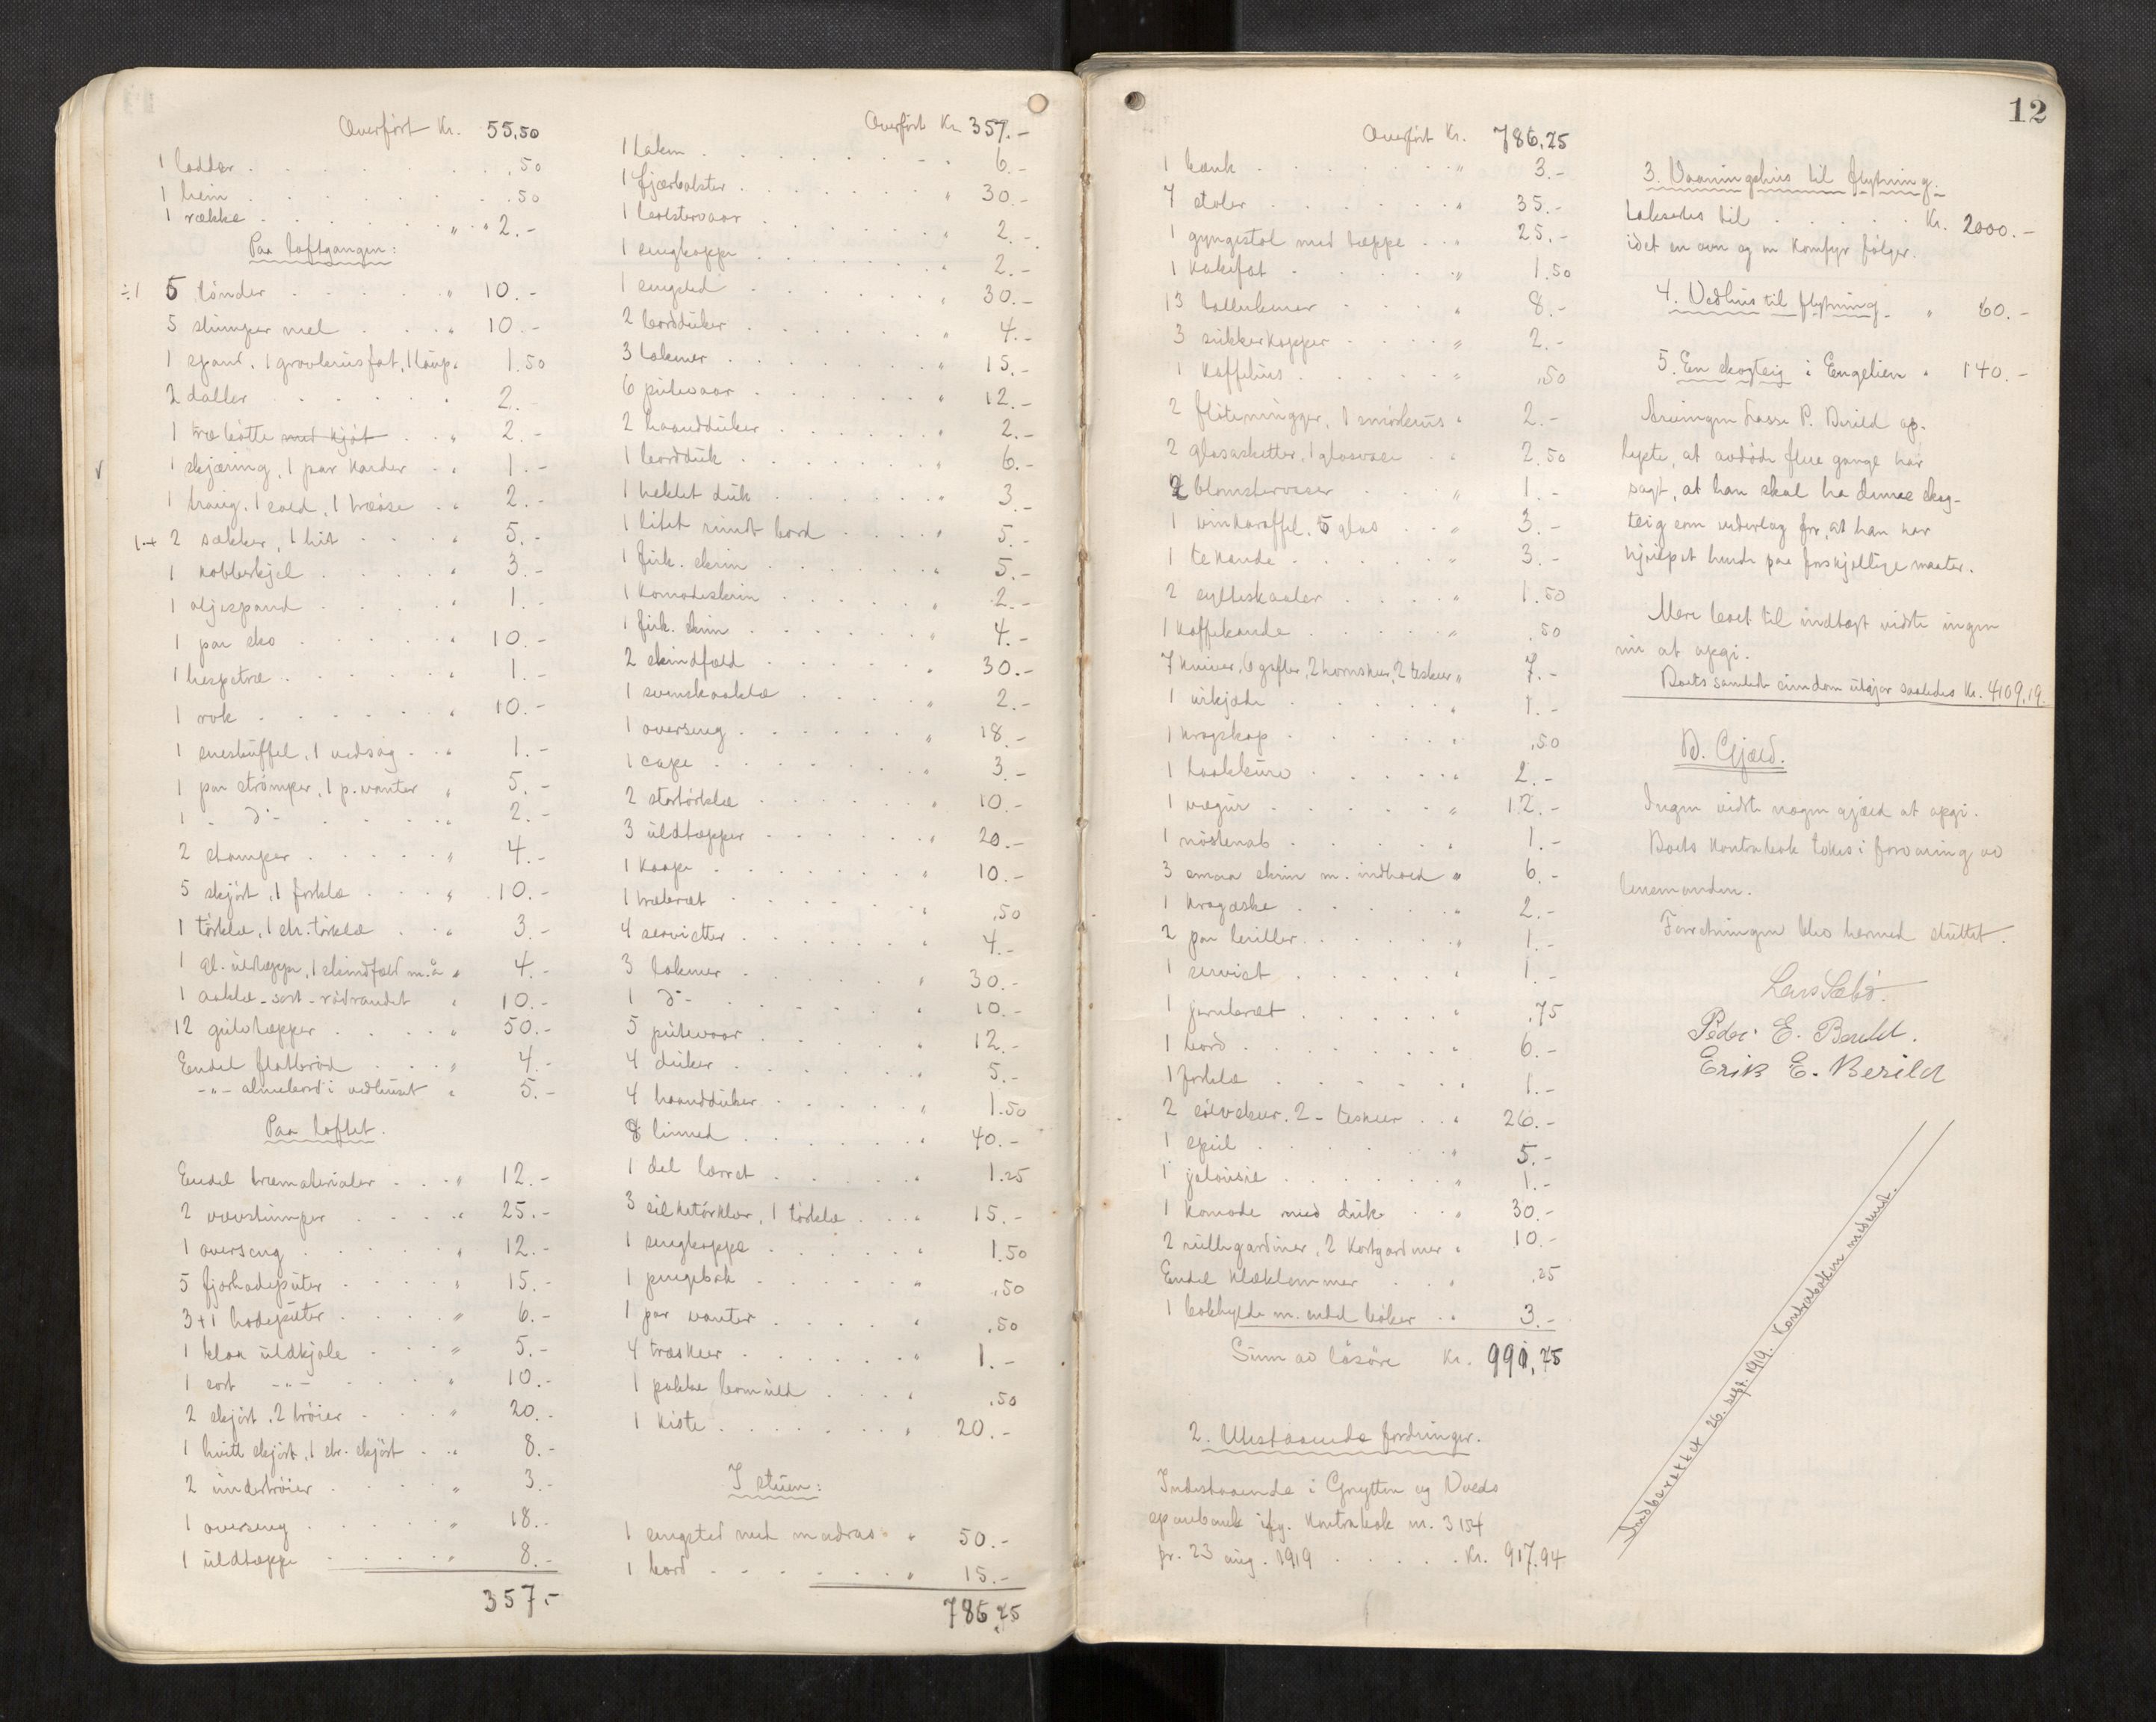 Overført Kr. 55,50
1 ladder . . . ,50
1 hein . . . ,50
1 række . . . " 2.-
Paa loftgangen:
÷1 5 tönder . . . " 10.-
5 slumper mel . . . " 10.-
1 spand, 1 fat, 1 løup " 1.50
2 daller . . . " 2.-
1 træbötte med kjöt . . . " 2.-
1 skjæring, 1 par karder . . . " 1.-
1 traug, 1 sold, 1 træöse . . . " 2.-
2 sækker, 1 hit . . . " 5.-
1 kobberkjel . . . " 3.-
1 oljespand . . . " 1.-
1 par sko . . . " 10.-
1 hespetræ . . . " 1.-
1 rok . . . " 10.-
1 sneskuffel, 1 vedsag . . . " 1.-
1 par strömper, 1 p. vanter " 5.-
1 - d:- . . . " 2.-
2 stamper . . . " 4.-
5 skjört, 1 forklæ . . . " 10.-
1 törklæ, 1 str. törklæ . . . " 3.-
1 gl. uldtæppe, 1 skindfæld m. å " 4.-
1 aaklæ - sort - rödrandet " 10.-
12 gulvtæpper . . . " 50.-
Endel flatbröd . . . " 4.-
-"- almebord i vedhuset " 5.-
Paa loftet.
Endel træmaterialer . . . " 12.-
2 vævstumper . . . " 25.-
1 overseng . . . " 12.-
5 fjörhodeputer . . . " 15.-
3+1 hodeputer . . . " 6.-
1 blaa uldkjole . . . " 5.-
1 sort -"- . . . " 10.-
2 skjört, 2 tröier . . . " 20.-
1 hvitt skjört, 1 str. skjört . . . " 8.-
2 undertröier . . . " 3.-
1 overseng . . . " 18.-
1 uldtæppe . . . " 8.-
357.-
Overført Kr. 357.-
1 laken . . . 6.-
1 fjærbolster . . . " 30.-
1 bolstervaar . . . " 2.-
1 sengkappe . . . " 2.-
1 sengsted . . . " 30.-
2 bordduker . . . " 4.-
3 lakener . . . " 15.-
6 putevaar . . . " 12.-
2 haandduker . . . " 2.-
1 bordduk . . . " 6.-
1 heklet duk . . . " 3.-
1 litet rundt bord . . . " 5.-
1 firk. skrin . . . " 5.-
1 komodeskrin . . . " 2.-
1 firk. skrin . . . " 4.-
2 skindfæld . . . " 30.-
1 svenskaaklæ . . . " 2.-
1 overseng . . . " 18.-
1 cape . . . " 3.-
2 stortörklæ . . . " 10.-
3 uldtæpper . . . " 20.-
1 kaape . . . " 10.-
1 træbræt . . . " ,50
4 servietter . . . " 4.-
3 lakener . . . " 30.-
1 d:- . . . " 10.-
5 putevaar . . . " 12.-
4 duker . . . " 5.-
4 haandduker . . . " 1.50
8 linned . . . " 40.-
1 del lærret . . . " 1.25
3 silketörklær, 1 törklæ . . . " 15.-
1 sengkappe . . . " 1.50
1 pengebok . . . " ,50
1 par vanter . . . " ,50
4 træskeer . . . " 1.-
1 pakke bomuld . . . " ,50
1 kiste . . . " 20.-
I stuen:
1 sengsted med madras " 50.-
1 bord . . . " 15.-
786,25
12
Overført Kr. 786,25
1 bænk . . . " 3.-
7 stoler . . . " 35.-
1 gyngestol med tæppe . . . 25.-
1 kakefat . . . " 1.50
13 tallerkener . . . " 8.-
3 sukkerkopper . . . " 2.-
1 kaffehus . . . " ,50
2 flötemugger, 1 smörkrus " 2.-
2 glasasietter, 1 glasvase . . 2.50
2 blomstervaser . . . " 1.-
1 vinkaraffel, 5 glas . . . " 3.-
1 tekande . . . " 3.-
2 sylteskaaler . . . " 1.50
1 kaffekande . . . " ,50
7 kniver, 6 gafler, 2 hornskeer, 2 teskeer " 7.-
1 urkjæde . . . " 1.-
1 krogskap . . . " ,50
1 taakkuro . . . " 2.-
1 vægur . . . " 12.-
1 nöstenab . . . " 1.-
3 smaa skrin m. indhold " 6.-
1 kragæske . . . " 2.-
2 par briller . . . " 1.-
1 serviet . . . " 1.-
1 jernbræt . . . " ,75
1 bord . . . " 6.-
1 forklæ . . . " 1.-
2 sölvskeer, 2 - teskeer . . . " 26.-
1 speil . . . " 5.-
1 jalousie . . . " 1.-
1 komode med duk . . . " 30.-
2 rullegardiner, 2 kortgardiner " 10.-
Endel klæklemmer . . . ,25
1 bokhylde m. endel böker . . 3.-
Sum av lösöre Kr. 990,75
2. Utestaaende fordringer.
Indestaaende i Grytten og Voeds
sparebank ifg. kontrabok nr. 3154
pr. 23 aug. 1919 . . . Kr. 917.94
3. Vaaningshus til flytning.
takseres til . . . Kr. 2000.-
idet en ovn og en komfyr fölger.
4. Vedhus til flytning. " 60.-
5. En skogteig i Engelien " 140.-
Arvingen Lasse P. Berild op-
lyste, at avdöde flere gange har
sagt, at han skal ha denne skog-
teig som vederlag for, at han har
hjulpet hende paa forskjellige maater.
Mere boet til indtægt vidste ingen
nu at opgi.
Boets samlede eiendom utgjør saaledes Kr. 4109,19.
B. Gjæld.
Ingen vidste nogen gjæld at opgi.
Boets kontrabok tokes i forvaring av
lensmanden.
Forretningen blev hermed sluttet.
Lars Sæbö.
Peder E. Berild.
Erik E. Berild
Indberettet 26. sept. 1919. Kontraboken medsendt.